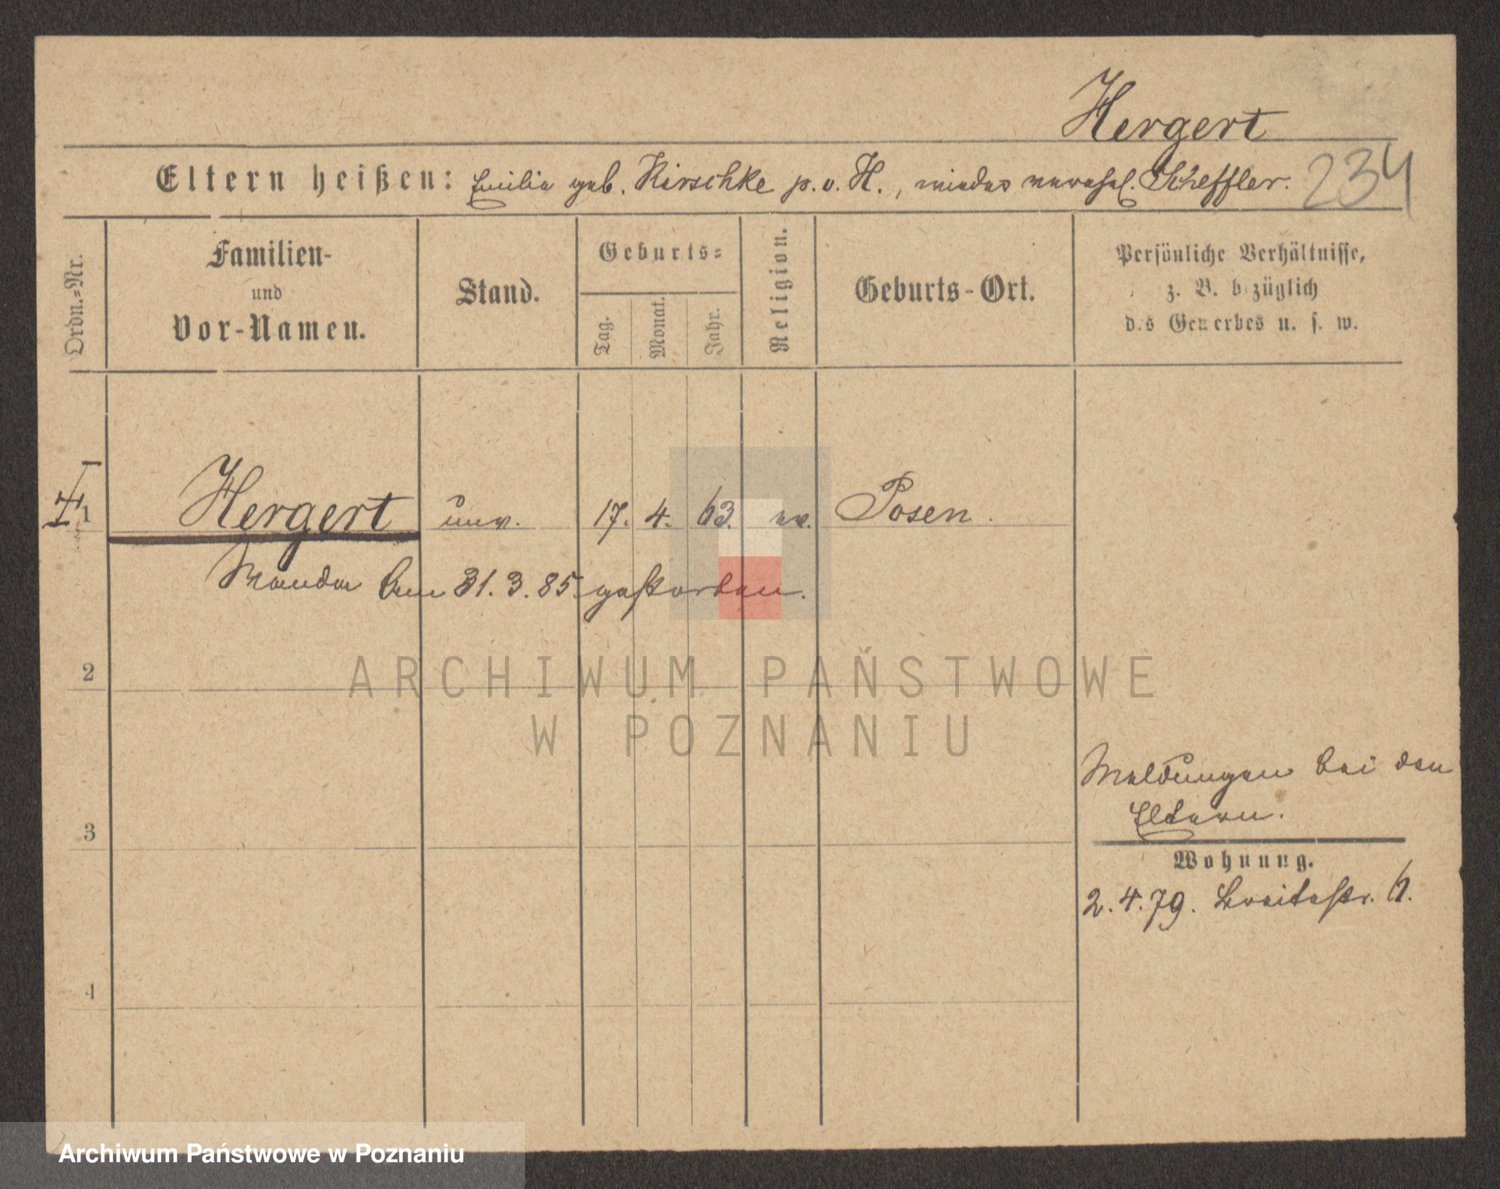 Hergert
Eltern heißen: Emilie geb. Kirschke p. v. H., wieder verehel. Scheffler.
234
Ordn.-Nr.
Familien-
und
Vor-Namen.
Stand.
Geburts-
Tag.
Monat.
Jahr.
Religion.
Geburts-Ort.
Persönliche Verhältnisse,
z. B. bezüglich
des Gewerbes u. s. w.
1 Hergert unv. 17. 4. 63. ev. Posen.
am 31. 3. 85. gestorben.
2
3
4
Meldungen bei den
Eltern.
Wohnung.
2. 4. 79. Breitestr. 6.
ARCHIWUM PAŃSTWOWE
W POZNANIU
Archiwum Państwowe w Poznaniu